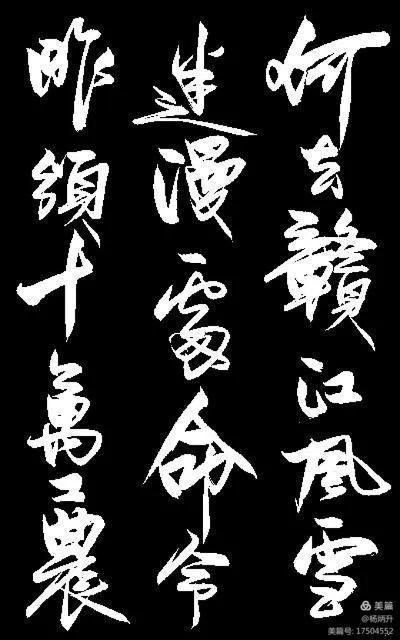 何去贛江風雪
迷漫處命令
昨頒十萬工農
美篇
@杨炳升
美篇号: 17504552